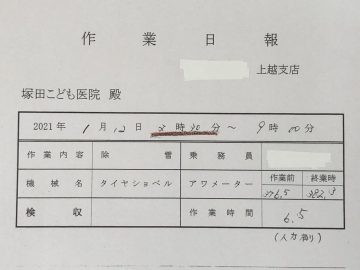 作業日報
上越支店
塚田こども医院 殿
2021年 1月12日 2時30分 ～ 9時00分
作業内容 除雪 乗務員
機械名 タイヤショベル アワメーター 作業前 終業時
376.5 382.3
検収 作業時間 6.5
(人力有り)